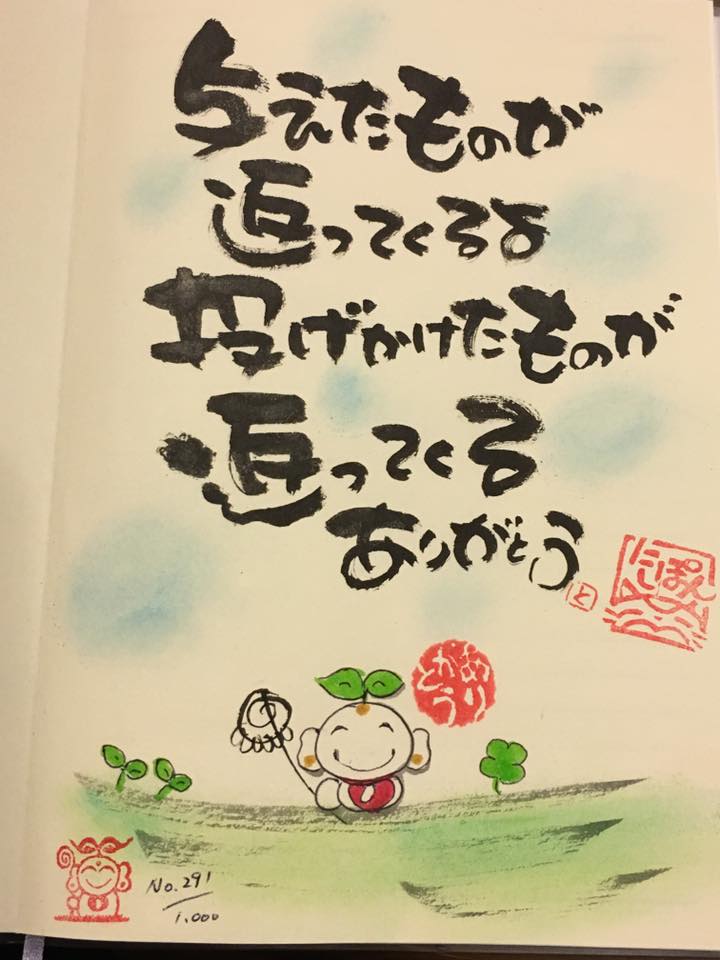 与えたものが
返ってくるよ
投げかけたものが
返ってくる
ありがとう
と
にっぽん
ありがとう
No.291
1,000